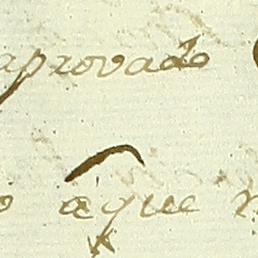 aprovado
aque